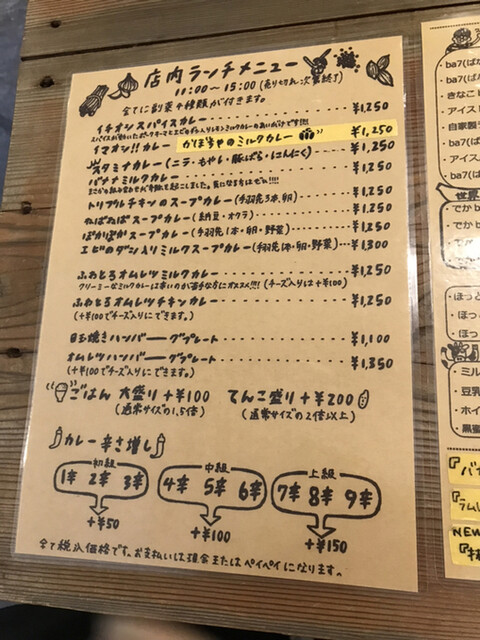 店内ランチメニュー
11:00〜15:00(売り切れ次第終了)
全てに副菜4種類が付きます。
イチオシスパイスカレー ¥1,250
イマオシ!!カレー かぼちゃのミルクカレー ¥1,250
スタミナカレー(ニラ・もやし・豚ばら・にんにく) ¥1,250
バナナミルクカレー ¥1,250
トリプルチキンのスープカレー(手羽元3本・卵) ¥1,250
ねばねばスープカレー(納豆・オクラ) ¥1,250
ぽかぽかスープカレー(手羽元1本・卵・野菜) ¥1,250
エビのダシ入りミルクスープカレー(手羽元1本・卵・野菜) ¥1,300
ふわとろオムレツミルクカレー ¥1,250
クリーミーなミルクカレーは辛いのが苦手な方にオススメ!!!(チーズ入りは+¥100)
ふわとろオムレツチキンカレー ¥1,250
(+¥100でチーズ入りにできます。)
目玉焼きハンバーーグプレート ¥1,100
オムレツハンバーーグプレート ¥1,350
(+¥100でチーズ入りにできます。)
ごはん 大盛り+¥100 てんこ盛り+¥200
(通常サイズの1.5倍) (通常サイズの2倍以上)
カレー辛さ増し
初級 中級 上級
1辛 2辛 3辛 4辛 5辛 6辛 7辛 8辛 9辛
+¥50 +¥100 +¥150
全て税込価格です。お支払いは現金またはペイペイになります。
ba7(ば
ba7(ば
きなこ
アイス
自家製
ba7(ば
アイス
ba7(ば
世界
でかb
でか
ほっと
ほっ
ほっ
ミル
豆乳
ホイ
黒蜜
『バ
『ラム
NEW
『抹